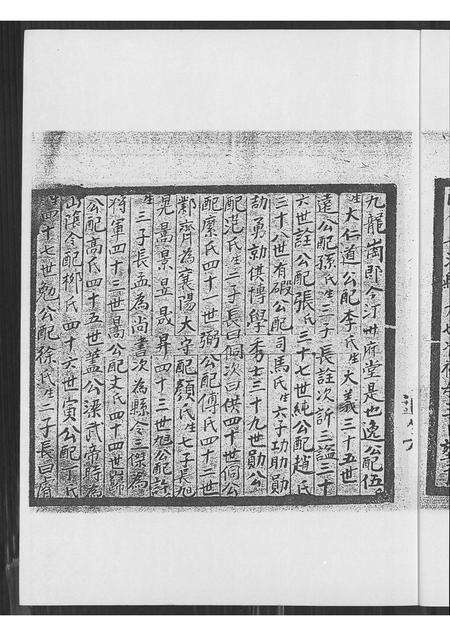 九龍崗即今汀州府堂是也逸公配伍
氏生大仁道公配李氏生大義三十五世
遠公配孫氏生三子長詮次訢三謚三十
六世詮公配張氏三十七世純公配趙氏
三十八世有碬公配司馬氏生六子功助勛
劼勇勍供博學秀士三十九世勛公
配范氏生二子長曰侗次曰供四十世侗公
配縻氏四十一世弼公配傅氏四十二世
鄰齊為襄陽大守配顏氏生七子長旭
晃暠景昱晟昇四十三世旭公配許
氏生三子長孟為尚書次為縣令三傑為
將軍四十三世暠公配丈氏四十四世歸
公配高氏四十五世藎公梁武帝時為
山陰令配鄉氏四十六世寅公配丁氏
四十七世勉公配徐氏生二子長曰